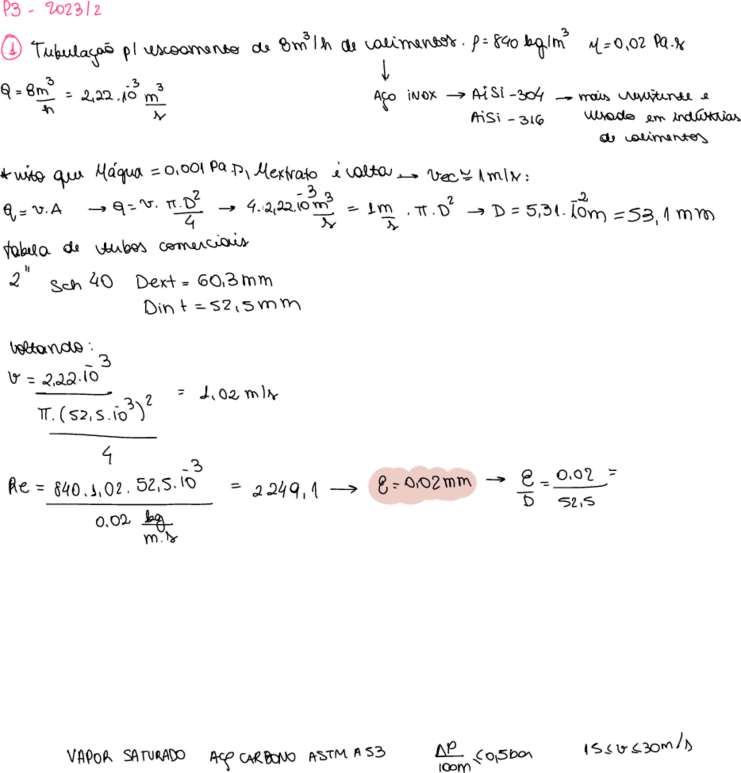 P3 - 2023/2
① Tubulação p/ escoamento de 8m³/h de alimentos. ρ=840 kg/m³ μ=0,02 Pa.s
↓
Q = 8m³/h = 2,22.10⁻³ m³/s
Aço inox → AiSi-304 → mais resistente e
AiSi-316 usado em indústrias
de alimentos
* visto que μágua = 0,001 Pa.s, μextrato é alta → vec ≅ 1m/s:
Q = v.A → Q = v. π.D²/4 → 4.2,22.10⁻³ m³/s = 1m/s . π.D² → D = 5,31.10⁻² m = 53,1 mm
tabela de tubos comerciais
2" Sch 40 Dext = 60,3 mm
Dint = 52,5 mm
voltando:
v = 2,22.10⁻³ / (π.(52,5.10⁻³)² / 4) = 1,02 m/s
Re = 840.1,02.52,5.10⁻³ / 0,02 kg/m.s = 2249,1 → ε = 0,02 mm → ε/D = 0,02/52,5 =
VAPOR SATURADO AÇO CARBONO ASTM A53 ΔP/100m ≤ 0,5 bar 15 ≤ v ≤ 30 m/s